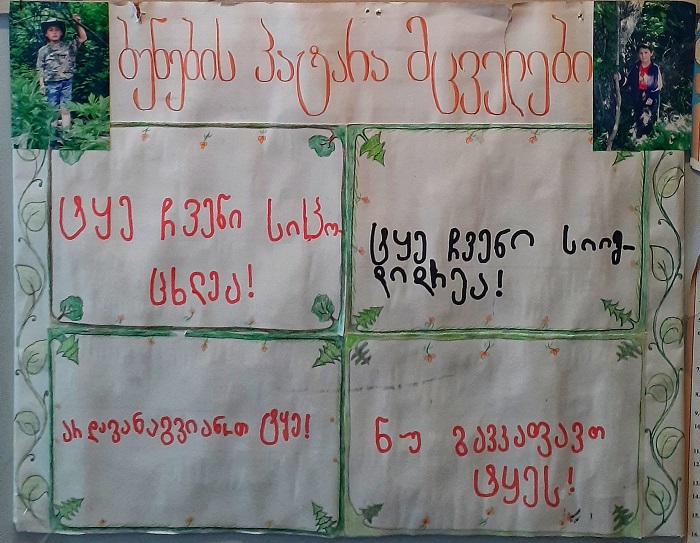 ბუნების პატარა მცველები
ტყე ჩვენი სიცო-
ცხლეა!
ტყე ჩვენი სიმ-
დიდრეა!
არ დავანაგვიანოთ ტყე!
ნუ გავკაფავთ
ტყეს!